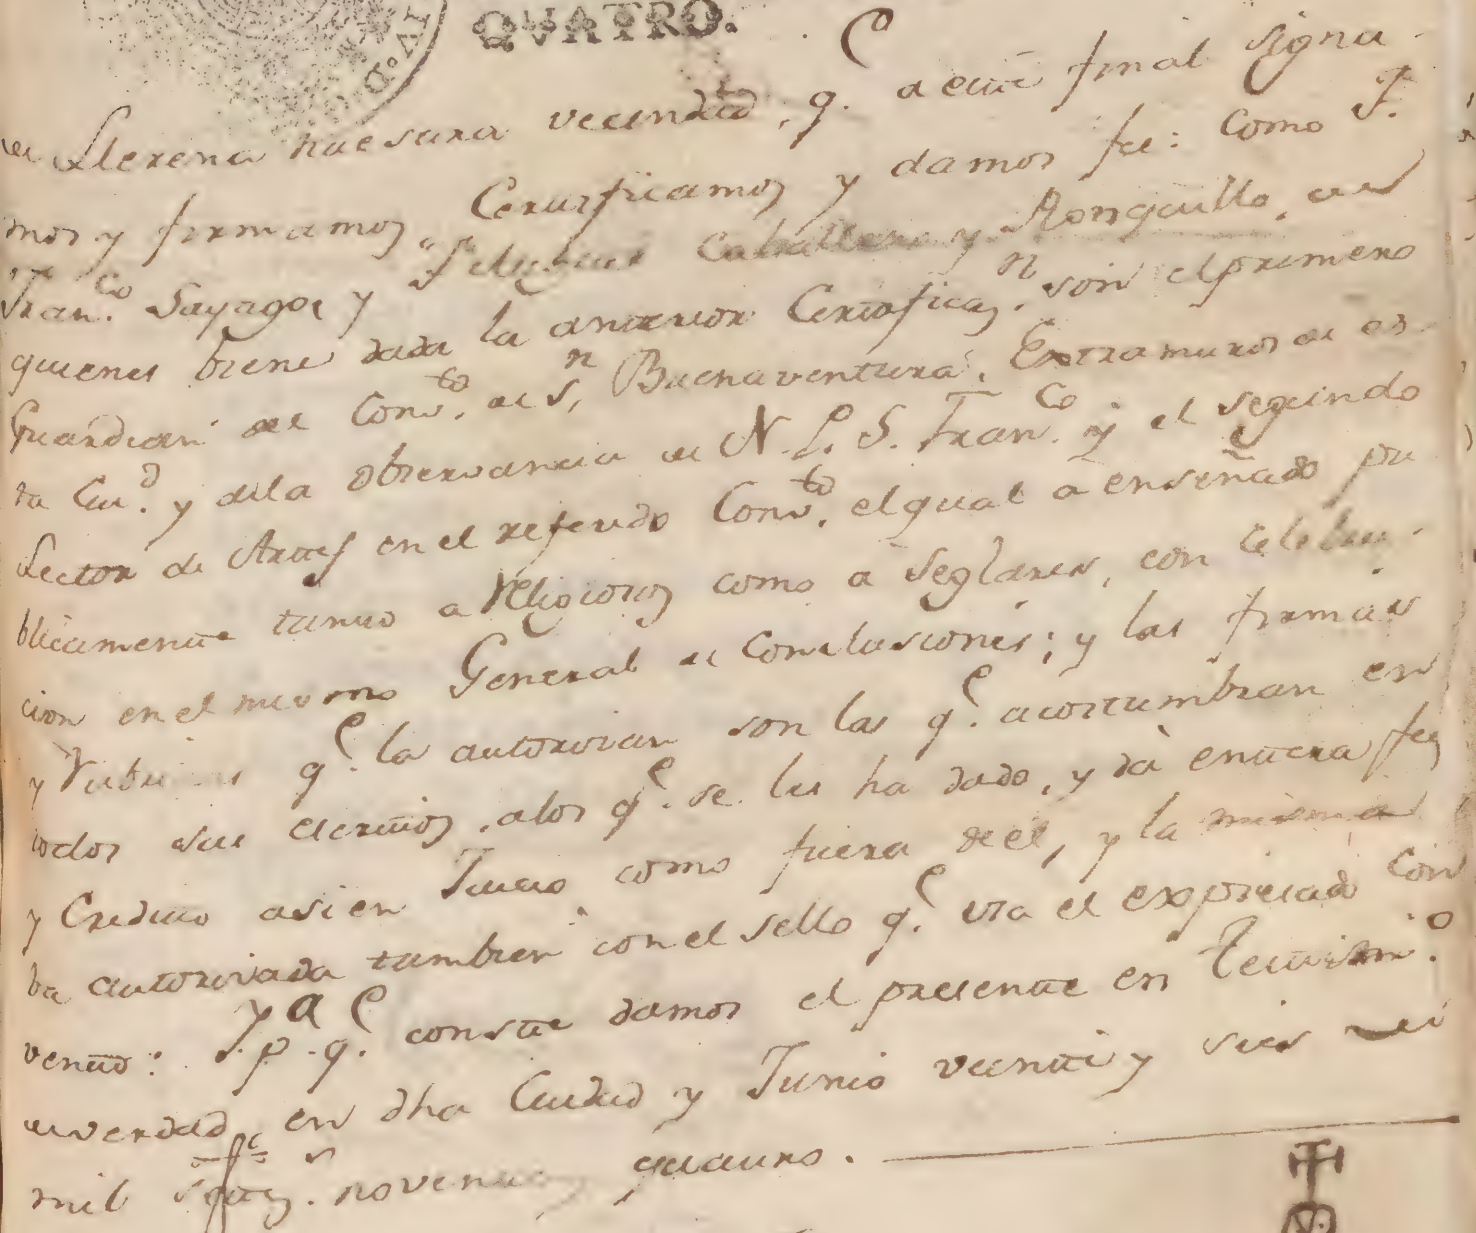 QVATRO.
de Llerena nuestra vecindad, q.e a este final signa
mos y firmamos, Certificamos y damos fee: Como Fr.
Fran.co Sayago, y Fr. Caballero y Ronquillo, de
quienes biene dada la anterior Certificaz.n son el primero
Guardian del Conv.to de S.n Buenaventura, Extramuros de es
ta Ciu.d y dela Observancia de N. P. S. Fran.co y el segundo
Lector de Artes en el referido Conv.to el qual a enseñado pu
blicamente tanto a Religiosos como a Seglares, con celebra
cion en el mismo General de Conclusiones; y las firmas
y Rubricas q.e la autorizan son las q.e acostumbran en
todos sus escritos, alos q.e se les ha dado, y dà entera fee
y Credito asi en Juicio como fuera de el, y la misma
ba autorizada tambien con el sello q.e usa el expresado Con
vento: Y p.a q.e conste damos el presente en Testim.o
de verdad en dha Ciudad y Junio veinte y seis de
mil setez.s noventa y quatro.